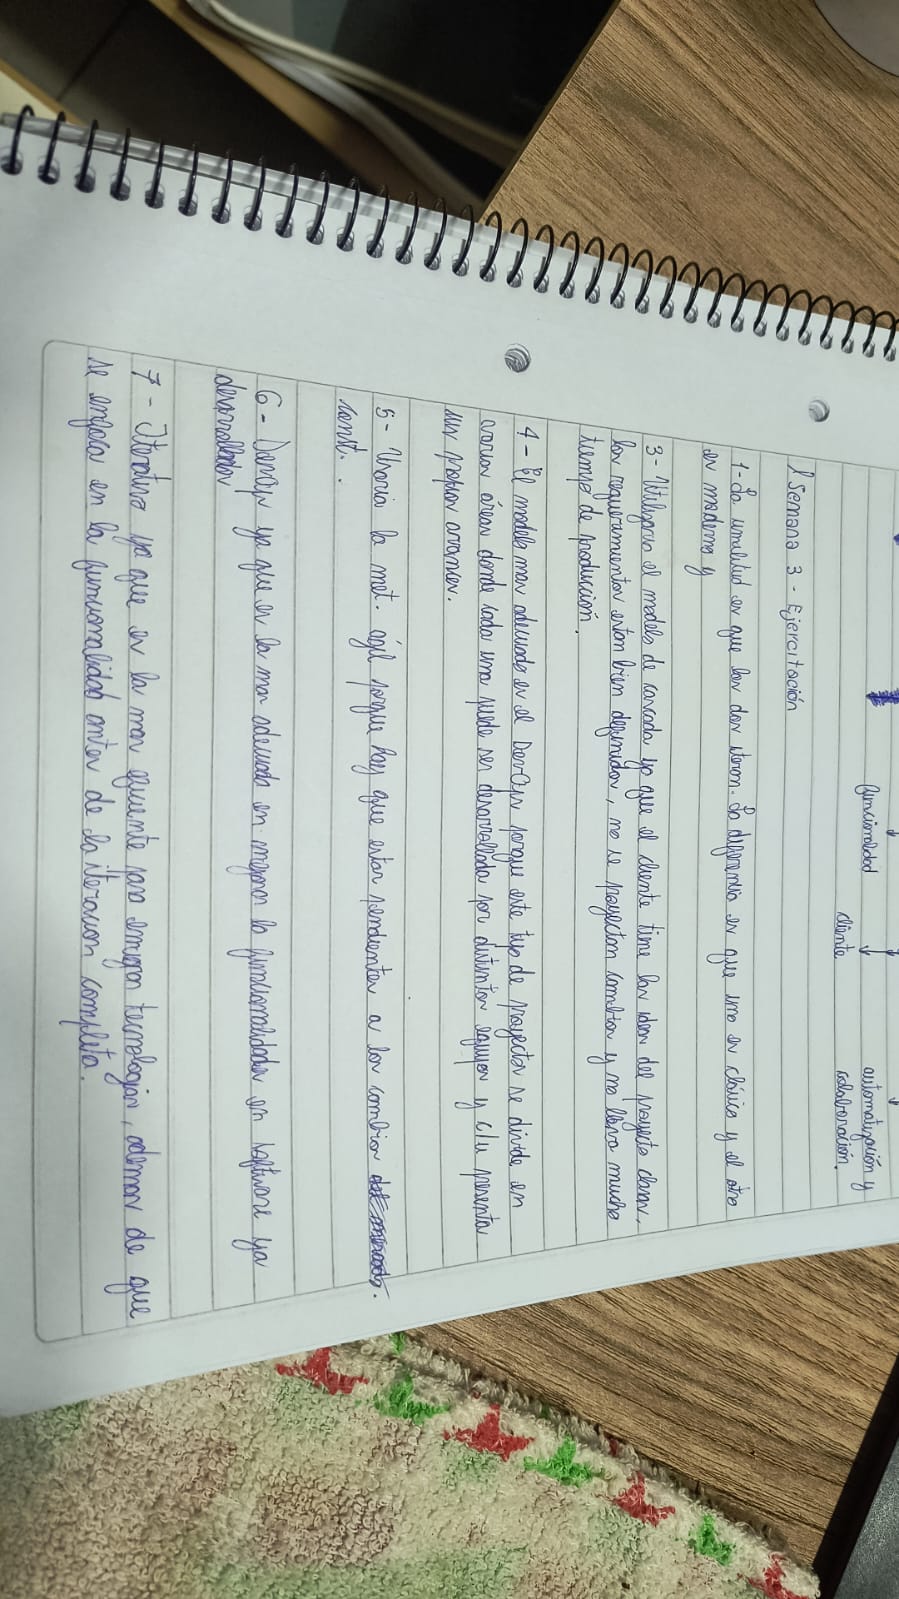 funcionalidad
automatización y
cliente
colaboración.
Semana 3 - Ejercitación
1- La similitud es que las dos iteran. La diferencia es que uno es clásico y el otro
es moderno y
3- Utilizaria el modelo de cascada ya que el cliente tiene las ideas del proyecto claras.
los requerimientos estan bien definidos, no se proyectan cambios y no lleva mucho
tiempo de producción.
4- El modelo mas adecuado es el DevOps porque este tipo de proyectos se divide en
varias áreas donde cada una puede ser desarrollada por distintos equipos y c/u presenta
sus propios avances.
5- Usaria la met. ágil porque hay que estar pendientes a los cambios
const.
6- DevOps ya que es la mas adecuada en mejorar la funcionalidades en software ya
desarrollados
7- Iterativo ya que es la mas eficiente para emigrar tecnologias, ademas de que
se enfoca en la funcionalidad antes de la iteracion completa.